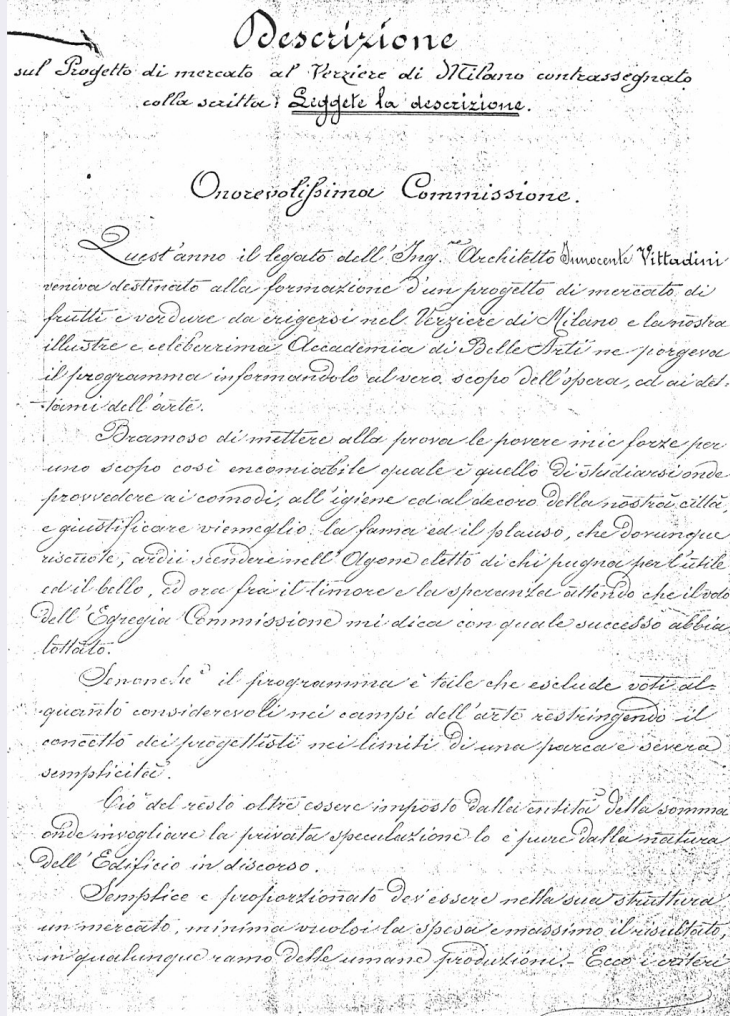 Descrizione
sul Progetto di mercato al Verziere di Milano contrassegnato
colla scritta: Leggete la descrizione.
Onorevolissima Commissione.
Quest'anno il legato dell'Ing.re Architetto Innocente Vittadini
veniva destinato alla formazione d'un progetto di mercato di
frutti e verdure da erigersi nel Verziere di Milano e la nostra
illustre e celeberrima Accademia di Belle Arti ne porgeva
il programma informandolo al vero scopo dell'opera, ed ai det-
tami dell'arte.
Bramoso di mettere alla prova le povere mie forze per
uno scopo così encomiabile quale è quello di studiarsi onde
provvedere ai comodi, all'igiene ed al decoro della nostra città,
e giustificare viemeglio la fama ed il plauso, che dovunque
riscuote, ardii scendere nell'Agone eletto di chi pugna per l'utile
ed il bello, ed ora fra il timore e la speranza attendo che il voto
dell'Egregia Commissione mi dica con quale successo abbia
lottato.
Senonchè il programma è tale che esclude voli al-
quanto considerevoli nei campi dell'arte restringendo il
concetto dei progettisti nei limiti di una parca e severa
semplicità.
Ciò del resto oltre essere imposto dalla entità della somma
onde invogliare la privata speculazione lo è pure dalla natura
dell'Edificio in discorso.
Semplice e proporzionato dev'essere nella sua struttura
un mercato, minima vuolsi la spesa e massimo il risultato,
in qualunque ramo delle umane produzioni. - Ecco i criteri